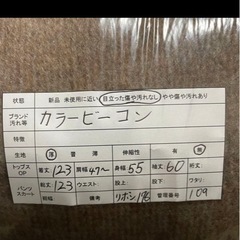 状態 新品 未使用に近い 目立った傷や汚れなし やや傷や汚れあり
ブランド 汚れ等 カラービーコン
特徴
厚 普 薄 伸縮性 有 無
トップス OP 着丈 123 肩幅 47〜 身幅 55 袖丈 60 裄丈
パンツ スカート 総丈 123 ウエスト 股上 股下 ワタリ
裾幅 備考 リボン196 管理番号 109